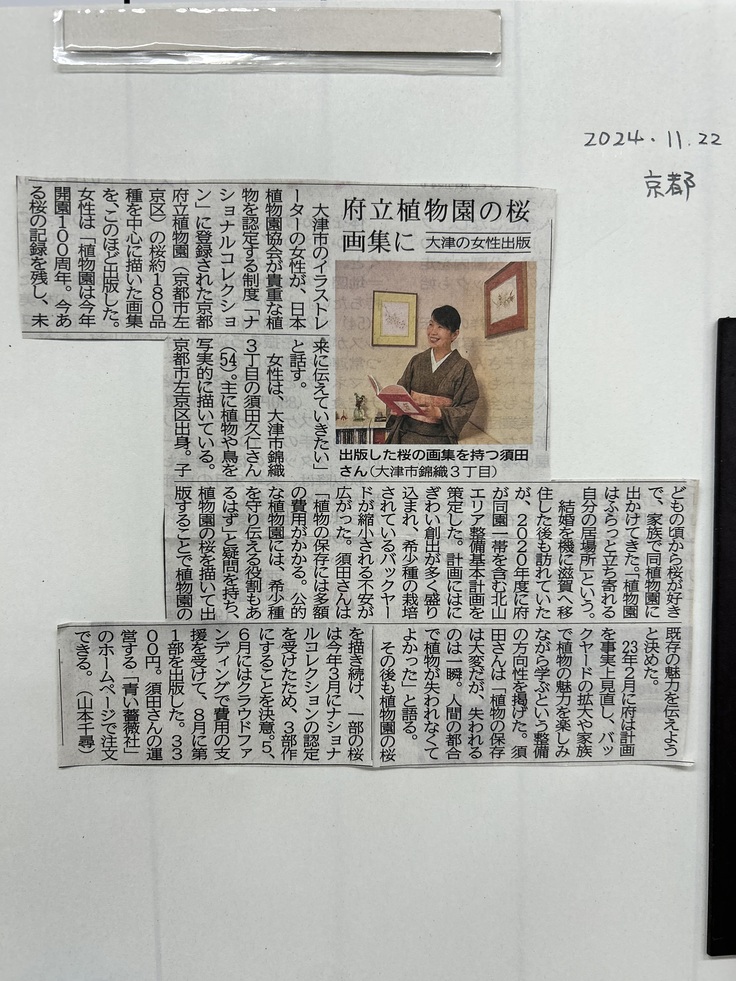 2024.11.22
京都
府立植物園の桜
画集に
大津の女性出版
大津市のイラストレ
ーターの女性が、日本
植物園協会が貴重な植
物を認定する制度「ナ
ショナルコレクショ
ン」に登録された京都
府立植物園（京都市左
京区）の桜約180品
種を中心に描いた画集
を、このほど出版した。
女性は「植物園は今年
開園100周年。今あ
る桜の記録を残し、未
来に伝えていきたい」
と話す。
女性は、大津市錦織
3丁目の須田久仁さん
（54）。主に植物や鳥を
写実的に描いている。
京都市左京区出身。子
出版した桜の画集を持つ須田
さん（大津市錦織3丁目）
どもの頃から桜が好き
で、家族で同植物園に
出かけてきた。「植物園
はふらっと立ち寄れる
自分の居場所」という。
結婚を機に滋賀へ移
住した後も訪れていた
が、2020年度に府
が同園一帯を含む北山
エリア整備基本計画を
策定した。計画にはに
ぎわい創出が多く盛り
込まれ、希少種の栽培
されているバックヤー
ドが縮小される不安が
広がった。須田さんは
「植物の保存には多額
の費用がかかる。公的
な植物園には、希少種
を守り伝える役割もあ
るはず」と疑問を持ち、
植物園の桜を描いて出
版することで植物園の
既存の魅力を伝えよう
と決めた。
23年2月に府は計画
を事実上見直し、バッ
クヤードの拡大や家族
で植物の魅力を楽しみ
ながら学ぶという整備
の方向性を掲げた。須
田さんは「植物の保存
は大変だが、失われる
のは一瞬。人間の都合
で植物が失われなくて
よかった」と語る。
その後も植物園の桜
を描き続け、一部の桜
は今年3月にナショナ
ルコレクションの認定
を受けたため、3部作
にすることを決意。5、
6月にはクラウドファ
ンディングで費用の支
援を受けて、8月に第
1部を出版した。33
00円。須田さんの運
営する「青い薔薇社」
のホームページで注文
できる。（山本千尋）